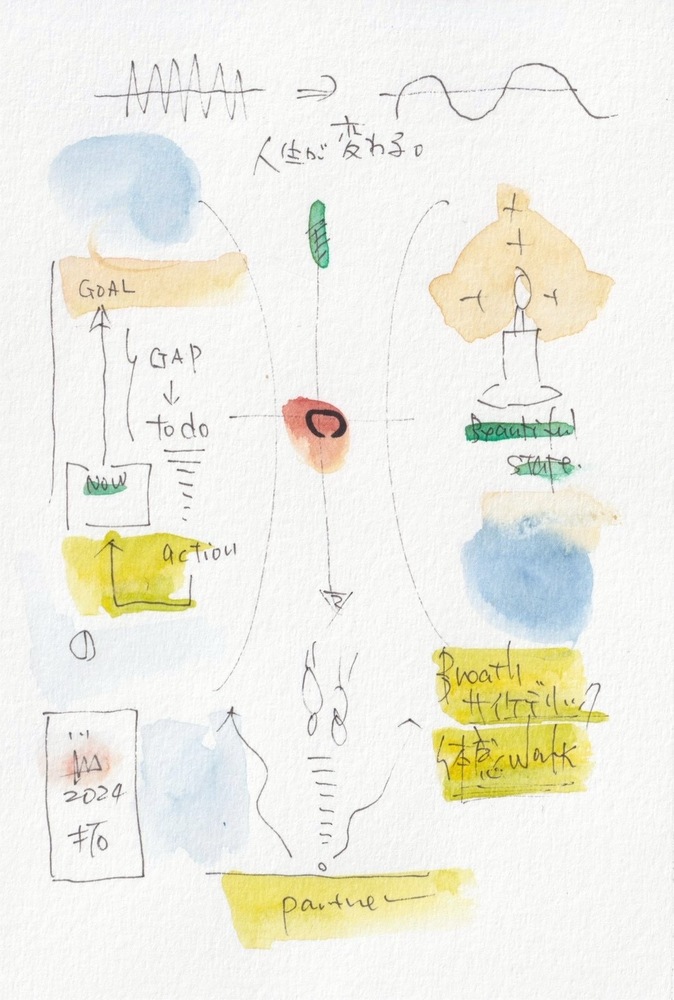 人生が変わる。
GOAL
GAP
to do
NOW
action
Beautiful
STATE.
Breath
サイケデリック
体感 Walk
2024
拓
partner